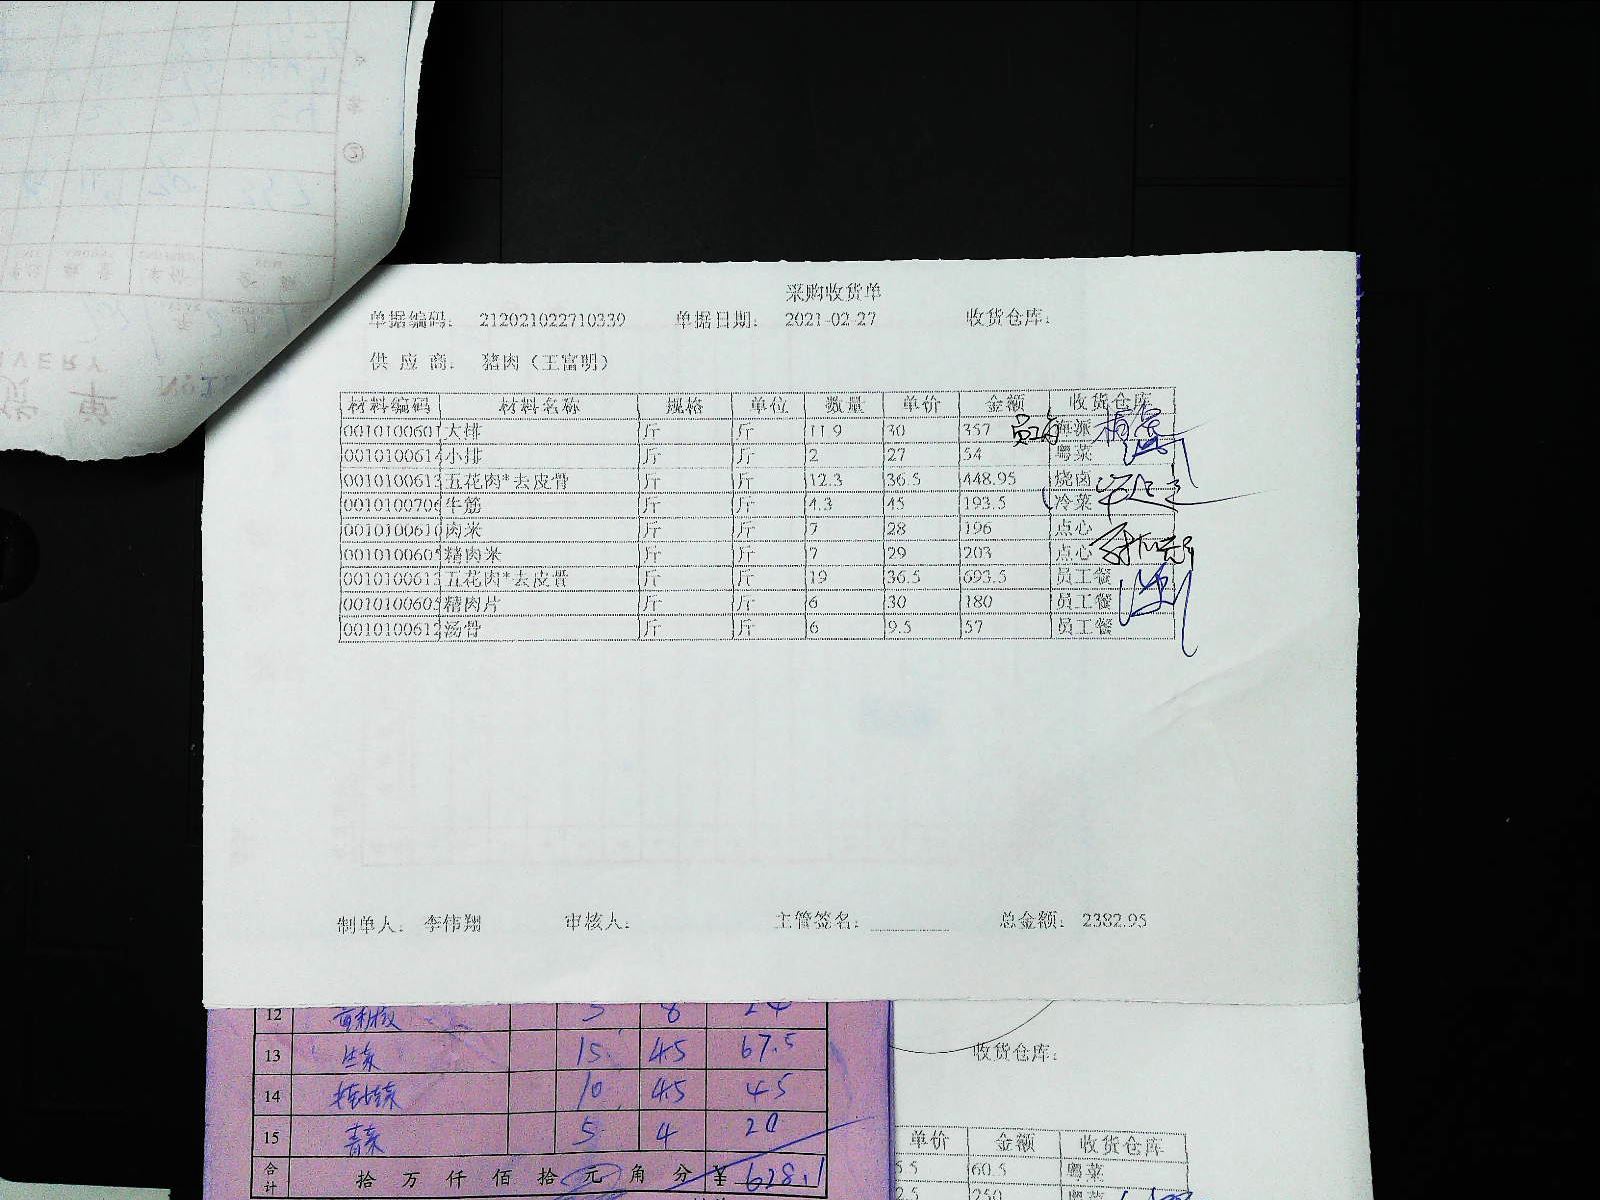 采购收货单
单据编码： 212021022710339 单据日期： 2021-02-27 收货仓库：
供 应 商： 猪肉（王富明）
材料编码 材料名称 规格 单位 数量 单价 金额 收货仓库
0010100601 大排 斤 斤 11.9 30 357 海派
0010100614 小排 斤 斤 2 27 54 粤菜
0010100613 五花肉*去皮骨 斤 斤 12.3 36.5 448.95 烧卤
0010100706 牛筋 斤 斤 4.3 45 193.5 冷菜
0010100610 肉米 斤 斤 7 28 196 点心
001010060 精肉米 斤 斤 7 29 203 点心
0010100613 五花肉*去皮骨 斤 斤 19 36.5 693.5 员工餐
0010100605 精肉片 斤 斤 6 30 180 员工餐
0010100612 汤骨 斤 斤 6 9.5 57 员工餐
制单人： 李伟翔 审核人： 主管签名： 总金额： 2382.95
12 5 8 24
13 生菜 15 4.5 67.5
14 10 4.5 45
15 青菜 5 4 20
合计 拾 万 仟 佰 拾 元 角 分 ¥ 628.1
收货仓库：
单价 金额 收货仓库
5.5 60.5 粤菜
2.5 250 粤菜